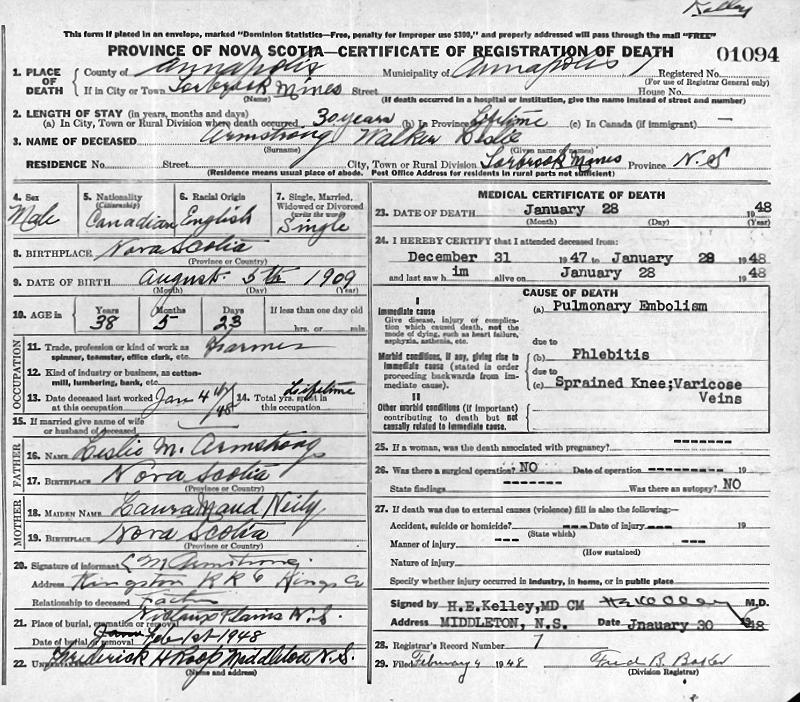 Kelley
This form if placed in an envelope, marked "Dominion Statistics—Free, penalty for improper use $300," and properly addressed will pass through the mail "FREE"
PROVINCE OF NOVA SCOTIA—CERTIFICATE OF REGISTRATION OF DEATH
01094
1. PLACE OF DEATH County of Annapolis Municipality of Annapolis Registered No.
(For use of Registrar General only)
If in City or Town Torbrook Mines Street House No.
(Name) (If death occurred in a hospital or institution, give the name instead of street and number)
2. LENGTH OF STAY (in years, months and days)
(a) In City, Town or Rural Division where death occurred 30 years (b) In Province Lifetime (c) In Canada (if immigrant) —
3. NAME OF DECEASED Armstrong Walker Leslie
(Surname) (Given name or names)
RESIDENCE No. Street City, Town or Rural Division Torbrook Mines Province N.S
(Residence means usual place of abode. Post Office Address for residents in rural parts not sufficient)
4. Sex Male
5. Nationality (Citizenship) Canadian
6. Racial Origin English
7. Single, Married, Widowed or Divorced (write the word) Single
8. BIRTHPLACE Nova Scotia
(Province or Country)
9. DATE OF BIRTH August 5th 1909
(Month) (Day) (Year)
10. AGE in Years 38 Months 5 Days 23 If less than one day old hrs. or min.
OCCUPATION
11. Trade, profession or kind of work as spinner, teamster, office clerk, etc. Farmer
12. Kind of industry or business, as cotton-mill, lumbering, bank, etc.
13. Date deceased last worked at this occupation Jan 4th/48
14. Total yrs. spent in this occupation Lifetime
15. If married give name of wife or husband of deceased
FATHER
16. Name Leslie M. Armstrong
17. Birthplace Nova Scotia
(Province or Country)
MOTHER
18. Maiden Name Laura Maud Neily
19. Birthplace Nova Scotia
(Province or Country)
20. Signature of informant L M Armstrong
Address Kingston R R 6 Kings Co
Relationship to deceased Father
21. Place of burial, cremation or removal Nictaux Plains N.S.
Date of burial or removal Feb 1st 1948
22. Undertaker Frederick H Roop Middleton N.S.
(Name and address)
MEDICAL CERTIFICATE OF DEATH
23. DATE OF DEATH January 28 1948
(Month) (Day) (Year)
24. I HEREBY CERTIFY that I attended deceased from:
December 31 1947 to January 28 1948
and last saw him alive on January 28 1948
CAUSE OF DEATH
I
Immediate cause
Give disease, injury or complication which caused death, not the mode of dying, such as heart failure, asphyxia, asthenia, etc.
(a) Pulmonary Embolism
due to
Morbid conditions, if any, giving rise to immediate cause (stated in order proceeding backwards from immediate cause).
(b) Phlebitis
due to
(c) Sprained Knee;Varicose
Veins
II
Other morbid conditions (if important) contributing to death but not causally related to immediate cause.
25. If a woman, was the death associated with pregnancy? -------
26. Was there a surgical operation? NO Date of operation --------- 19
State findings ------- Was there an autopsy? NO
27. If death was due to external causes (violence) fill in also the following:
Accident, suicide or homicide? --- Date of injury ---- 19
(State which)
Manner of injury --- ---
(How sustained)
Nature of injury
Specify whether injury occurred in industry, in home, or in public place
Signed by H.E.Kelley,MD CM H.E. Kelley M.D.
Address MIDDLETON, N.S. Date Jnauary 30 1948
28. Registrar's Record Number 7
29. Filed February 4 1948 Fred B. Baker
(Division Registrar)